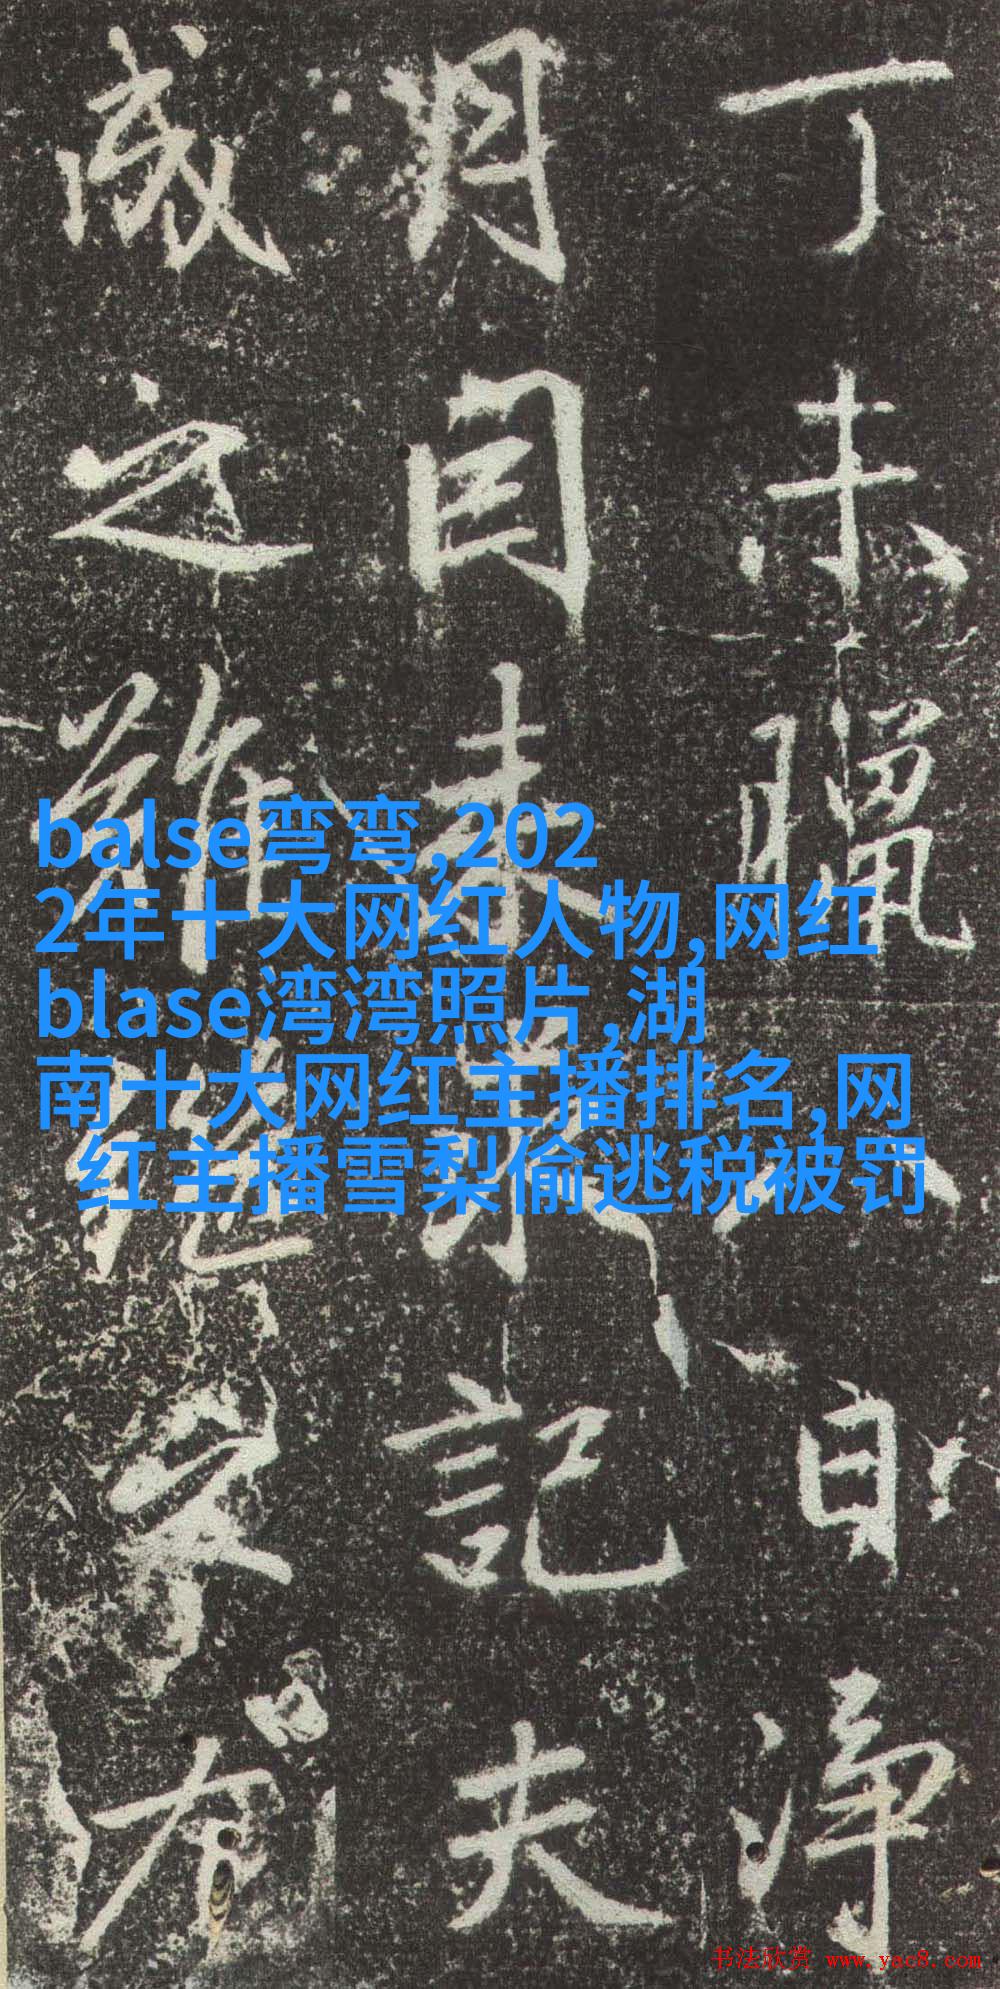 丁未臘八日淨
月目来求記夫
成之難
balse弯弯,202
2年十大网红人物,网红
blase湾湾照片,湖
南十大网红主播排名,网
红主播雪梨偷逃税被罚
书法欣赏 www.yac8.com